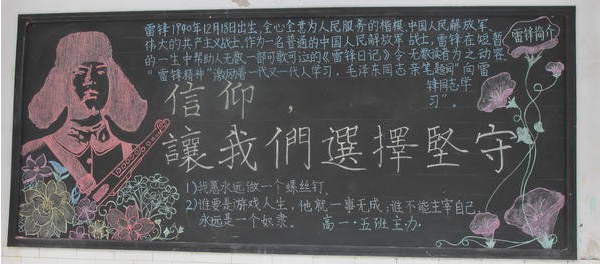 雷锋1940年12月18日出生,全心全意为人民服务的楷模,中国人民解放军
伟大的共产主义战士,作为一名普通的中国人民解放军战士,雷锋在短暂
的一生中帮助人无数一部可歌可泣的《雷锋日记》令无数读者为之动容
"雷锋精神"激励着一代又一代人学习.毛泽东同志亲笔题词"向雷
锋同志学
习".
雷锋简介
信仰,
讓我們選擇堅守
1)我愿永远做一个螺丝钉.
2)谁要是游戏人生,他就一事无成;谁不能主宰自己,
永远是一个奴隶.
高一·五班主办